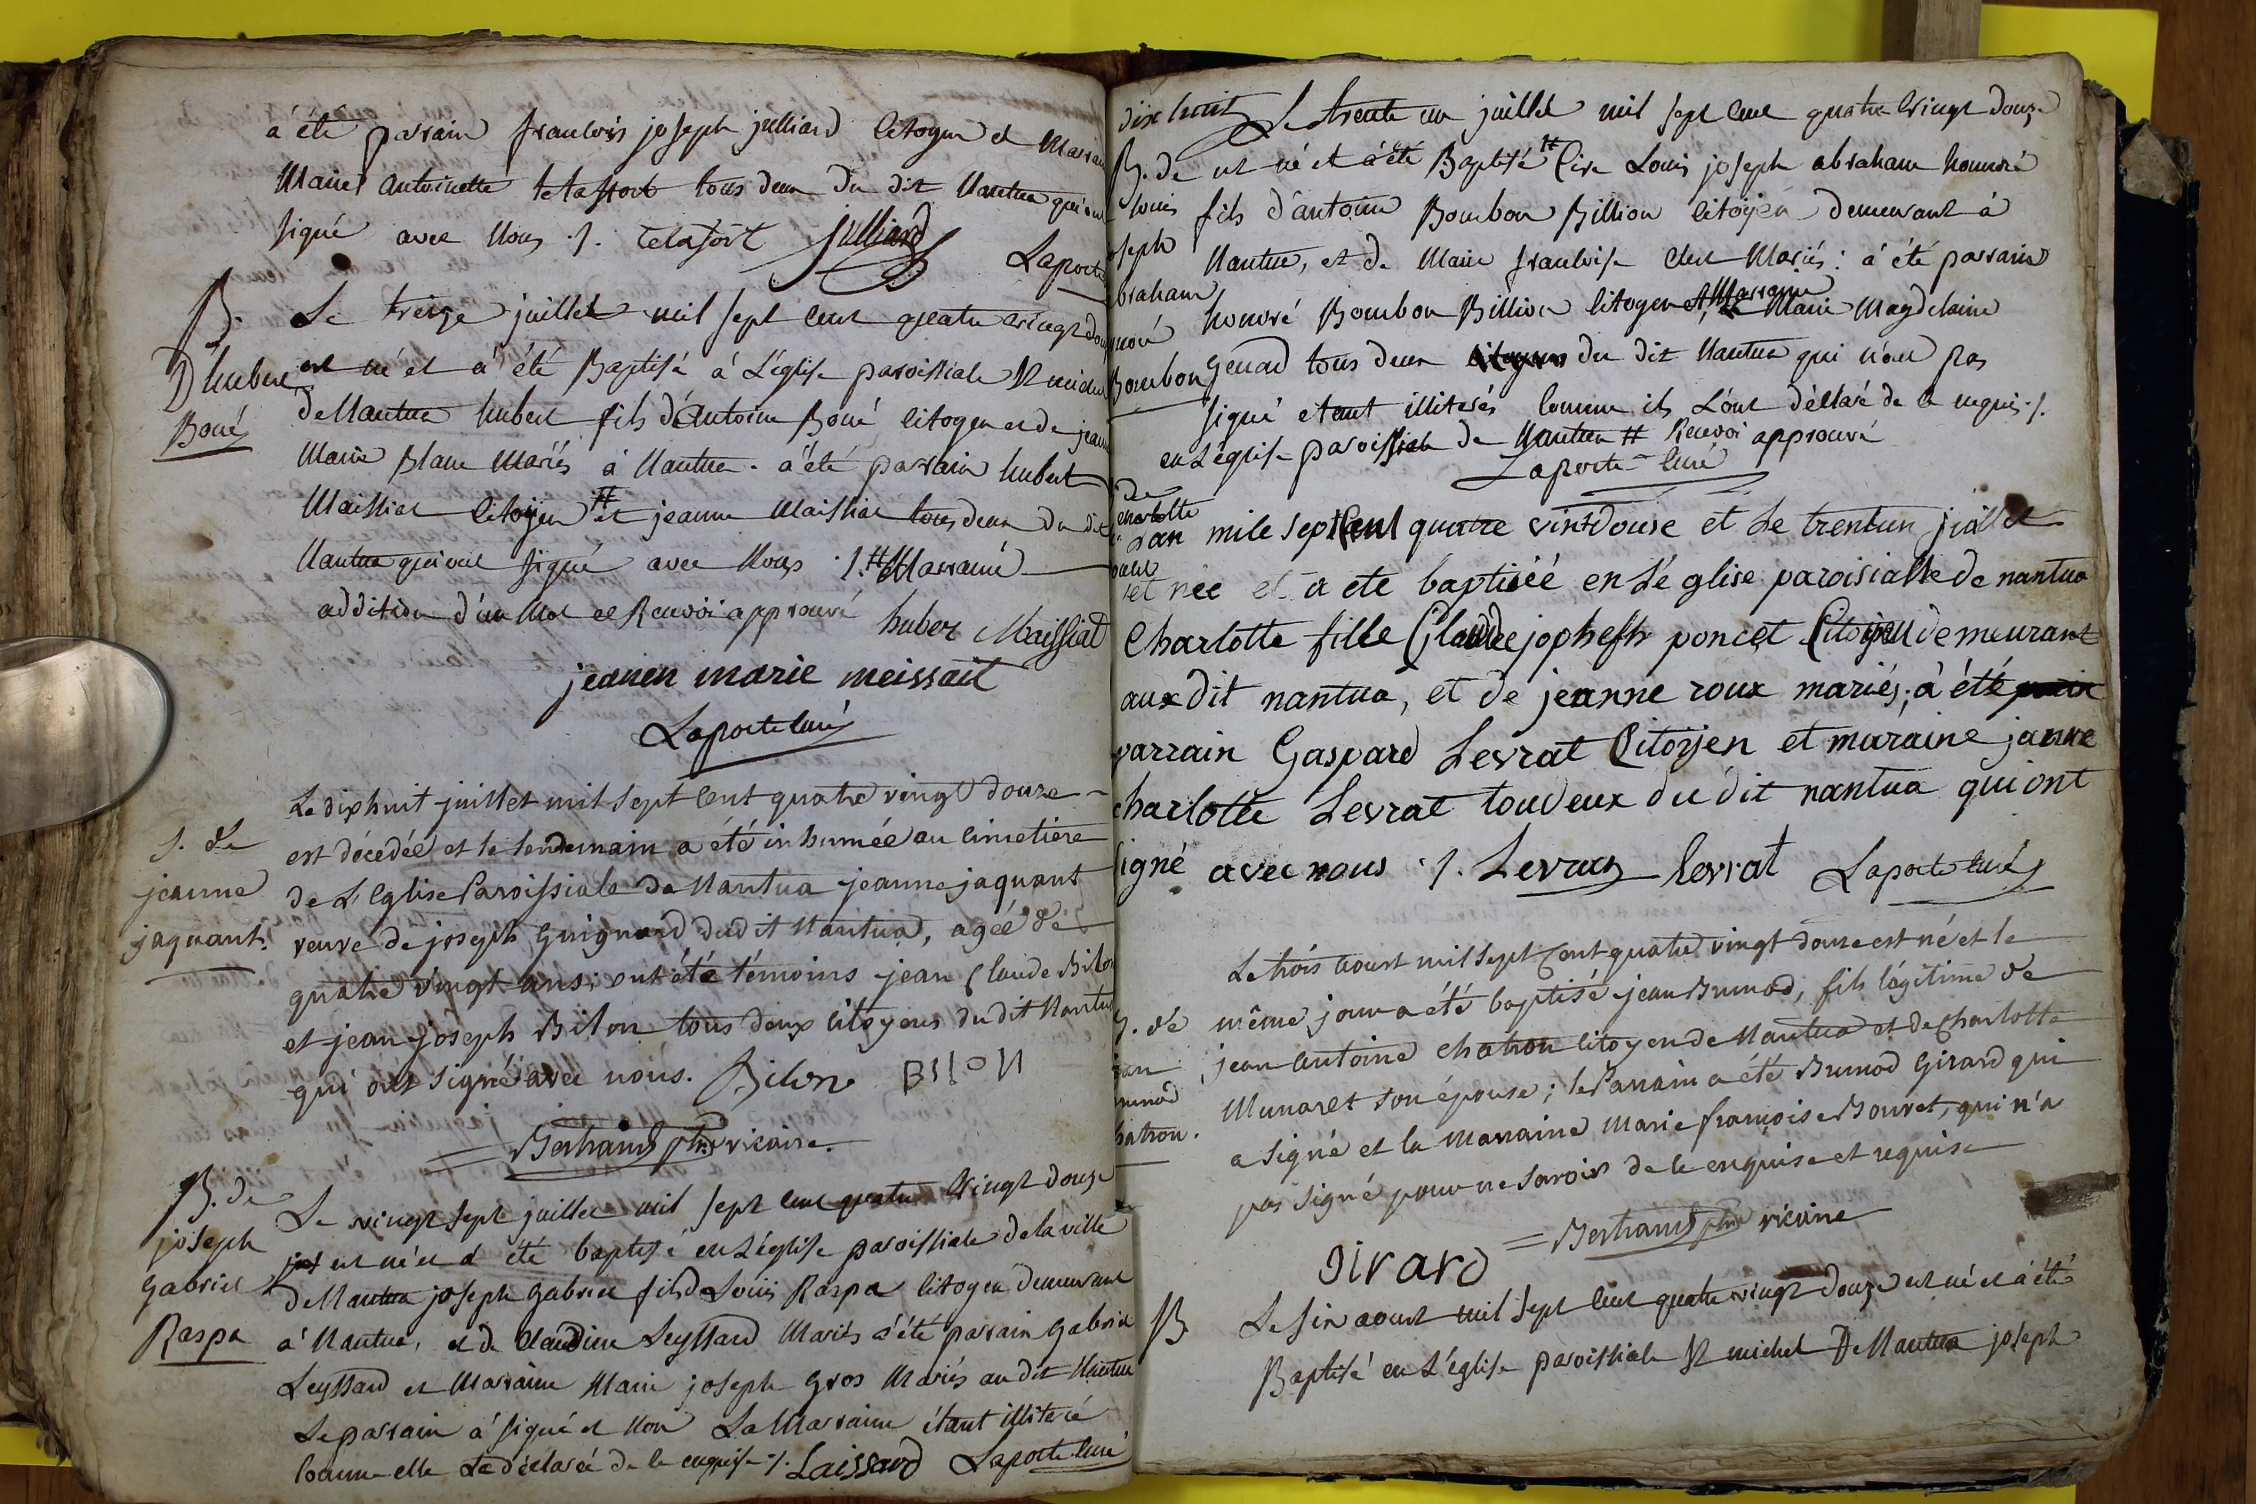 à été parrain francois joseph julliard Citoyen et Marraine
Marie antoinette telafort tous deux du dit Nantua qui ont
signé avec Nous ./. telafort julliard
Laporte
B.
D'hubert
Boué
Le treize juillet mil sept cent quatre vingt douze
est né et à été Baptisé à L'église paroissiale St michel
de Nantua hubert fils d'antoine Boué Citoyen et de jeanne
Marie Blanc Mariés à Nantua. à été parrain hubert
Maissiat Citoÿen # et jeanne Maissiat tous deux du dit
Nantua qui ont signé avec Nous ./. # Marraine
addition d'un Mot et Renvoi approuvé
huber Maissiat
jeanen marie meissait
Laporte Curé
S. de
jeanne
jaquant.
Le dix huit juillet mil sept Cent quatre vingt douze
est décédée et le lendemain a été inhumée au Cimetière
de L'Eglise Paroissiale de Nantua jeanne jaquant
veuve de joseph Guignard du dit Nantua, agée de
quatre vingt ans; ont été témoins jean Claude Bilon
et jean joseph Bilon tous deux Citoyens du dit Nantua
qui ont signé avec nous. Bilon BILON
Bertrand ptre vicaire.
B. de
joseph
gabriel
Raspa
Le vingt sept juillet mil sept cent quatre vingt douze
est né et à été baptisé en L'église paroissiale de la ville
de Nantua joseph gabriel fils de Louis Raspa Citoyen demeurant
à Nantua, et de Claudine Leyssard Mariés à été parrain gabriel
Leyssard et Marraine Marie joseph gros Mariés au dit Nantua
Le parrain à signé et Non La Marraine étant illiteré
Comme elle La déclaré de ce enquise ./. Laissard Laporte Curé
dix huit
B. de
Louis
joseph
abraham
honoré
Bourbon
Le trente un juillet mil sept cent quatre vingt douze
est né et à été Baptisé # Louis joseph abraham honnoré
fils d'antoine Bourbon Billion Citoÿen demeurant à
Nantua, et de Marie francoise Mariés: à été parrain
honoré Bourbon Billion Citoyen et Marraine Marie Magdelaine
genod tous deux du dit Nantua qui n'ont pas
signé etant illiterés Comme ils L'ont déclaré de ce requis ./.
en L'église paroissiale de Nantua # Renvoi approuvé
Laporte Curé
de
Charlotte
L'an mile sept Cent quatre vint douse et Le trentun juillet
est née et a ete baptiséé en L'é glise paroisialle de nantua
Charlotte fille Claude jophesh poncet Citoÿen demeurant
aux dit nantua, et de jeanne roux mariés; à été
parrain Gaspard Levrat Citoÿen et maraine janne
charlotte Levrat toudeux du dit nantua qui ont
signé avec nous ./. Levrat levrat Laporte Curé
B. de
jean
Brunod
Chatron.
Le trois aoust mil sept Cent quatre vingt douze est né et le
même jour a été baptisé jean Brunod, fils légitime de
jean Antoine Chatron Citoyen de Nantua et de Charlotte
Munaret son épouse; le Parrain a été Brunod Girard qui
a signé et la Marraine Marie françoise Bouvet, qui n'a
pas signé pour ne savoir de ce enquise et requise
Bertrand ptre vicaire
GIRARD
B
Le six aoust mil sept Cent quatre vingt douze est né et à été
Baptisé en L'église paroissiale St michel De Nantua joseph